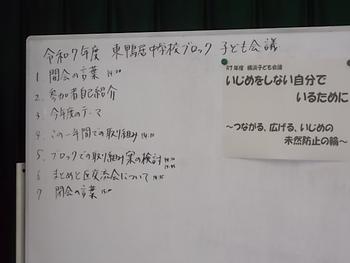 令和7年度 東鴨居中学校ブロック 子ども会議
1 開会の言葉 14:00
2. 参加者自己紹介
3. 今年度のテーマ
4. この一年間での取り組み
5. ブロックでの取り組み案の検討
6 まとめと区交流会について
7 閉会の言葉
R7年度 横浜子ども会議
いじめをしない自分で
いるために
～つながる、広げる、いじめの
未然防止の輪～